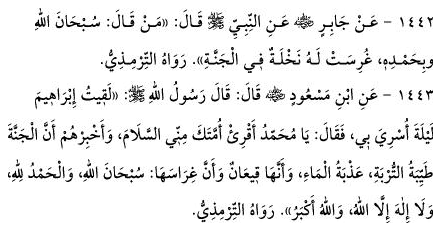 ١٤٤٢ - عَنْ جَابِرٍ ﷺ عَنِ النَّبِيِّ ﷺ قَالَ: «مَنْ قَالَ: سُبْحَانَ اللهِ
وبِحَمْدِهِ، غُرِسَتْ لَهُ نَخْلَةٌ فِي الْجَنَّةِ». رَوَاهُ التِّرْمِذِيُّ.
١٤٤٣ - عَنِ ابْنِ مَسْعُودٍ قَالَ: قَالَ رَسُولُ اللهِ ﷺ: «لَقِيتُ إِبْرَاهِيمَ
لَيْلَةَ أُسْرِيَ بِي، فَقَالَ: يَا مُحَمّدُ أَقْرِئْ أُمَّتَكَ مِنِّي السَّلَامَ، وَأَخْبِرْهُمْ أَنَّ الْجَنَّةَ
طَيِّبَةُ التُّرْبَةِ، عَذْبَةُ الْمَاءِ، وَأَنَّهَا قِيعَانٌ وَأَنَّ غِرَاسَهَا: سُبْحَانَ اللهِ، وَالْحَمْدُ لِلهِ،
وَلَا إِلهَ إِلَّا اللهُ، وَاللهُ أَكْبَرُ». رَوَاهُ التِّرْمِذِيُّ.